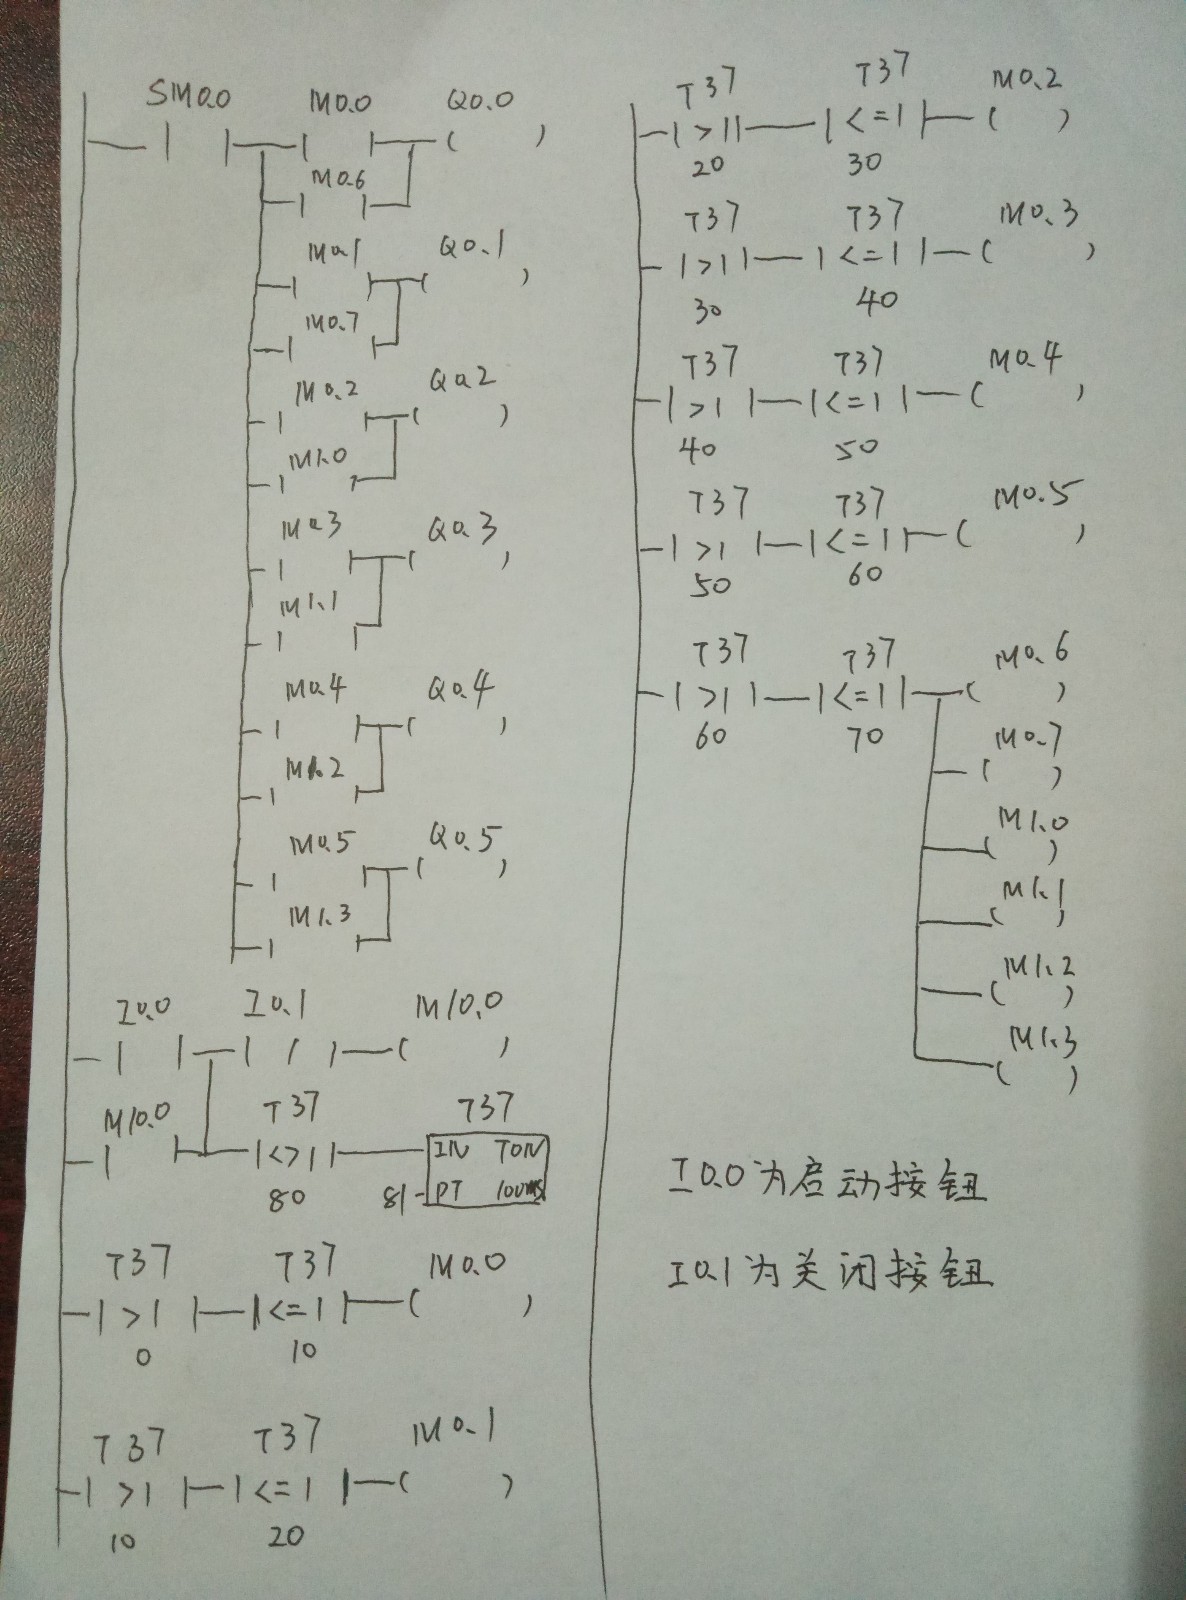 SM0.0 M0.0 Q0.0
( )
M0.6
M0.1 Q0.1
( )
M0.7
M0.2 Q0.2
( )
M1.0
M0.3 Q0.3
( )
M1.1
M0.4 Q0.4
( )
M1.2
M0.5 Q0.5
( )
M1.3
I0.0 I0.1 M10.0
/ ( )
M10.0 T37 T37
<> IN TON
80 81 PT 100ms
T37 T37 M0.0
> <= ( )
0 10
T37 T37 M0.1
> <= ( )
10 20
T37 T37 M0.2
> <= ( )
20 30
T37 T37 M0.3
> <= ( )
30 40
T37 T37 M0.4
> <= ( )
40 50
T37 T37 M0.5
> <= ( )
50 60
T37 T37 M0.6
> <= ( )
60 70
M0.7
( )
M1.0
( )
M1.1
( )
M1.2
( )
M1.3
( )
I0.0为启动按钮
I0.1为关闭按钮